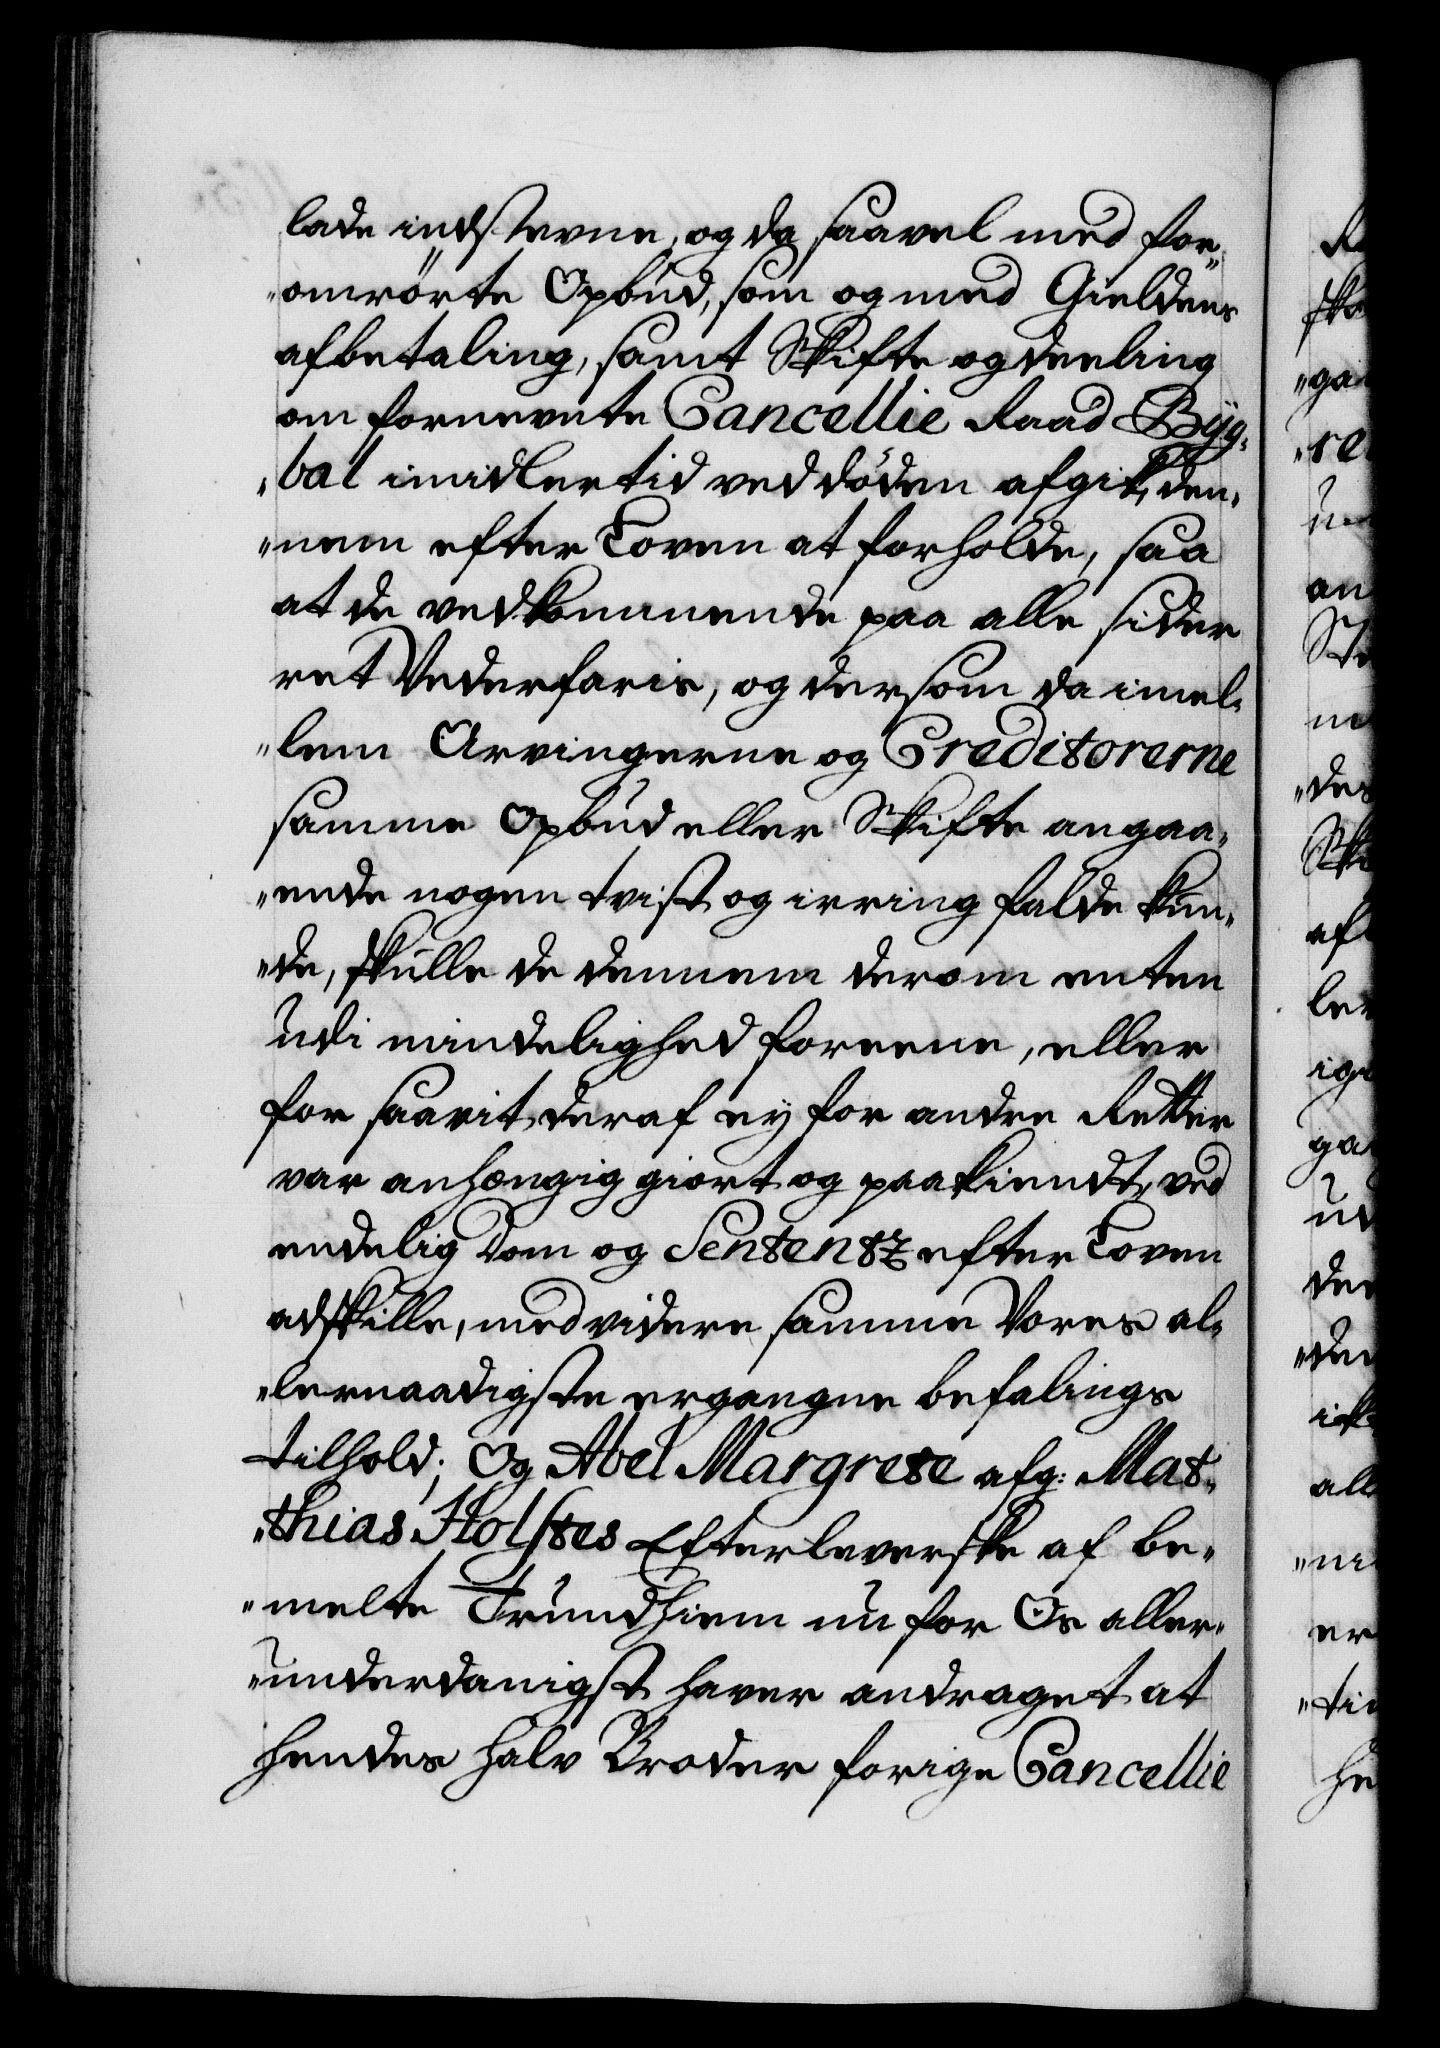 lade indstevne, og da saavel med for-
omrörte Opbud, som og med Gieldens
afbetaling, samt Skifte og deeling
om fornevnte Cancellie Raad Byg-
bal imidlertid ved döden afgik, den-
nem efter Loven at forholde, saa
at de vedkommende paa alle sider
ret Vederfaris, og dersom da imel-
lem Arvingerne og Creditorerne
samme Opbud eller Skifte angaa-
ende nogen tvist og irring falde kun-
de, skulle de dennem derom enten
udi mindelighed foreene, eller
for saavit deraf ey for andre Retter
var anhængig giort og paakiendt, ved
endelig Dom og Sententz efter Loven
adskille, med videre samme Vores al-
lernaadigste ergangne befalings
tilhold; Og Abel Margrete afg: Mat-
thias Holstes Efterleverske af be-
melte Trundhiem nu for Os aller-
underdanigst haver andraget at
hendes halv Broder forige Cancellie